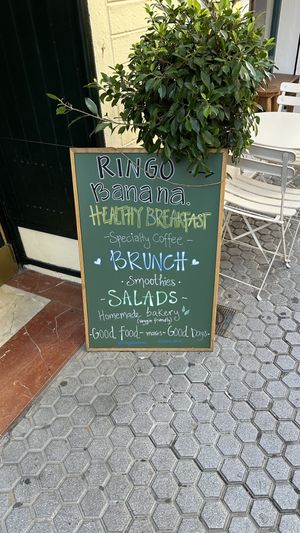 RINGO
Banana.
HEALTHY BREAKFAST
-Specialty Coffee-
BRUNCH
· Smoothies
-SALADS-
Homemade bakery
(veggie friendly)
-Good food-makes-Good Days-